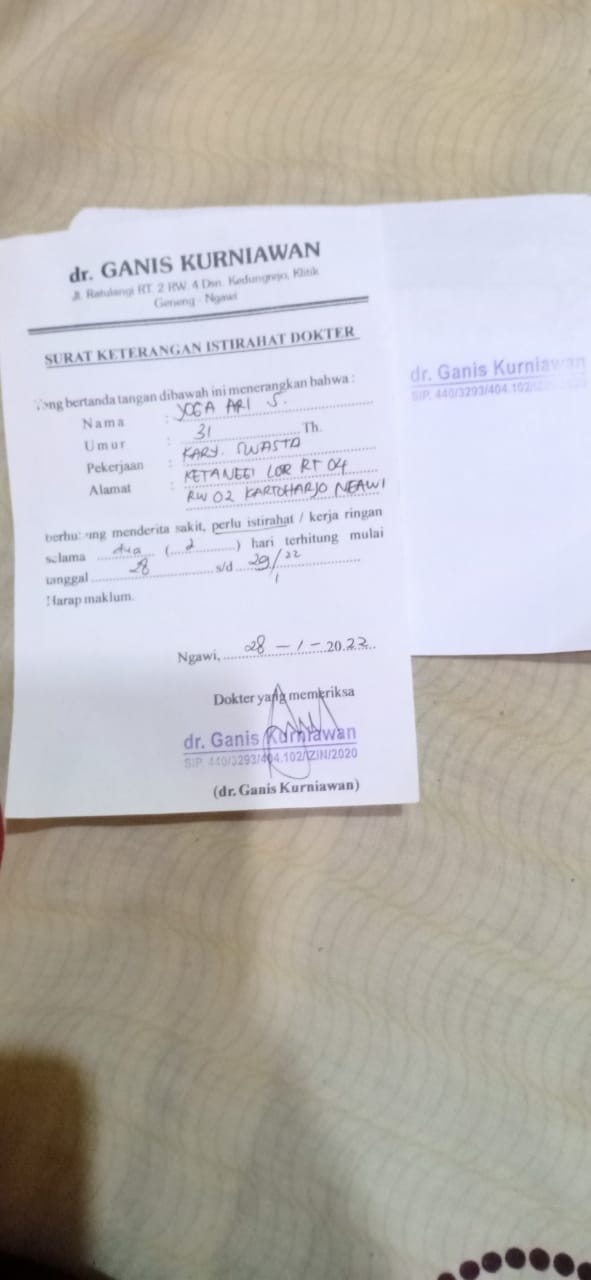 dr. GANIS KURNIAWAN
Jl. Ratulangi RT. 2 RW. 4 Dsn. Kedungrejo, Klitik
Geneng - Ngawi
SURAT KETERANGAN ISTIRAHAT DOKTER
Yang bertanda tangan dibawah ini menerangkan bahwa :
Nama : YOGA ARI S.
Umur : 31 Th.
Pekerjaan : KARY. SWASTA
Alamat : KETANGGI LOR RT 04
RW 02 KARTOHARJO NGAWI
berhubung menderita sakit, perlu istirahat / kerja ringan
selama dua ( 2 ) hari terhitung mulai
tanggal 28 s/d 29/22
1
Harap maklum.
Ngawi, 28 - 1 - 2022
Dokter yang memeriksa
dr. Ganis Kurniawan
SIP. 440/3293/404.102/IZIN/2020
(dr. Ganis Kurniawan)
dr. Ganis Kurniawan
SIP. 440/3293/404.102/